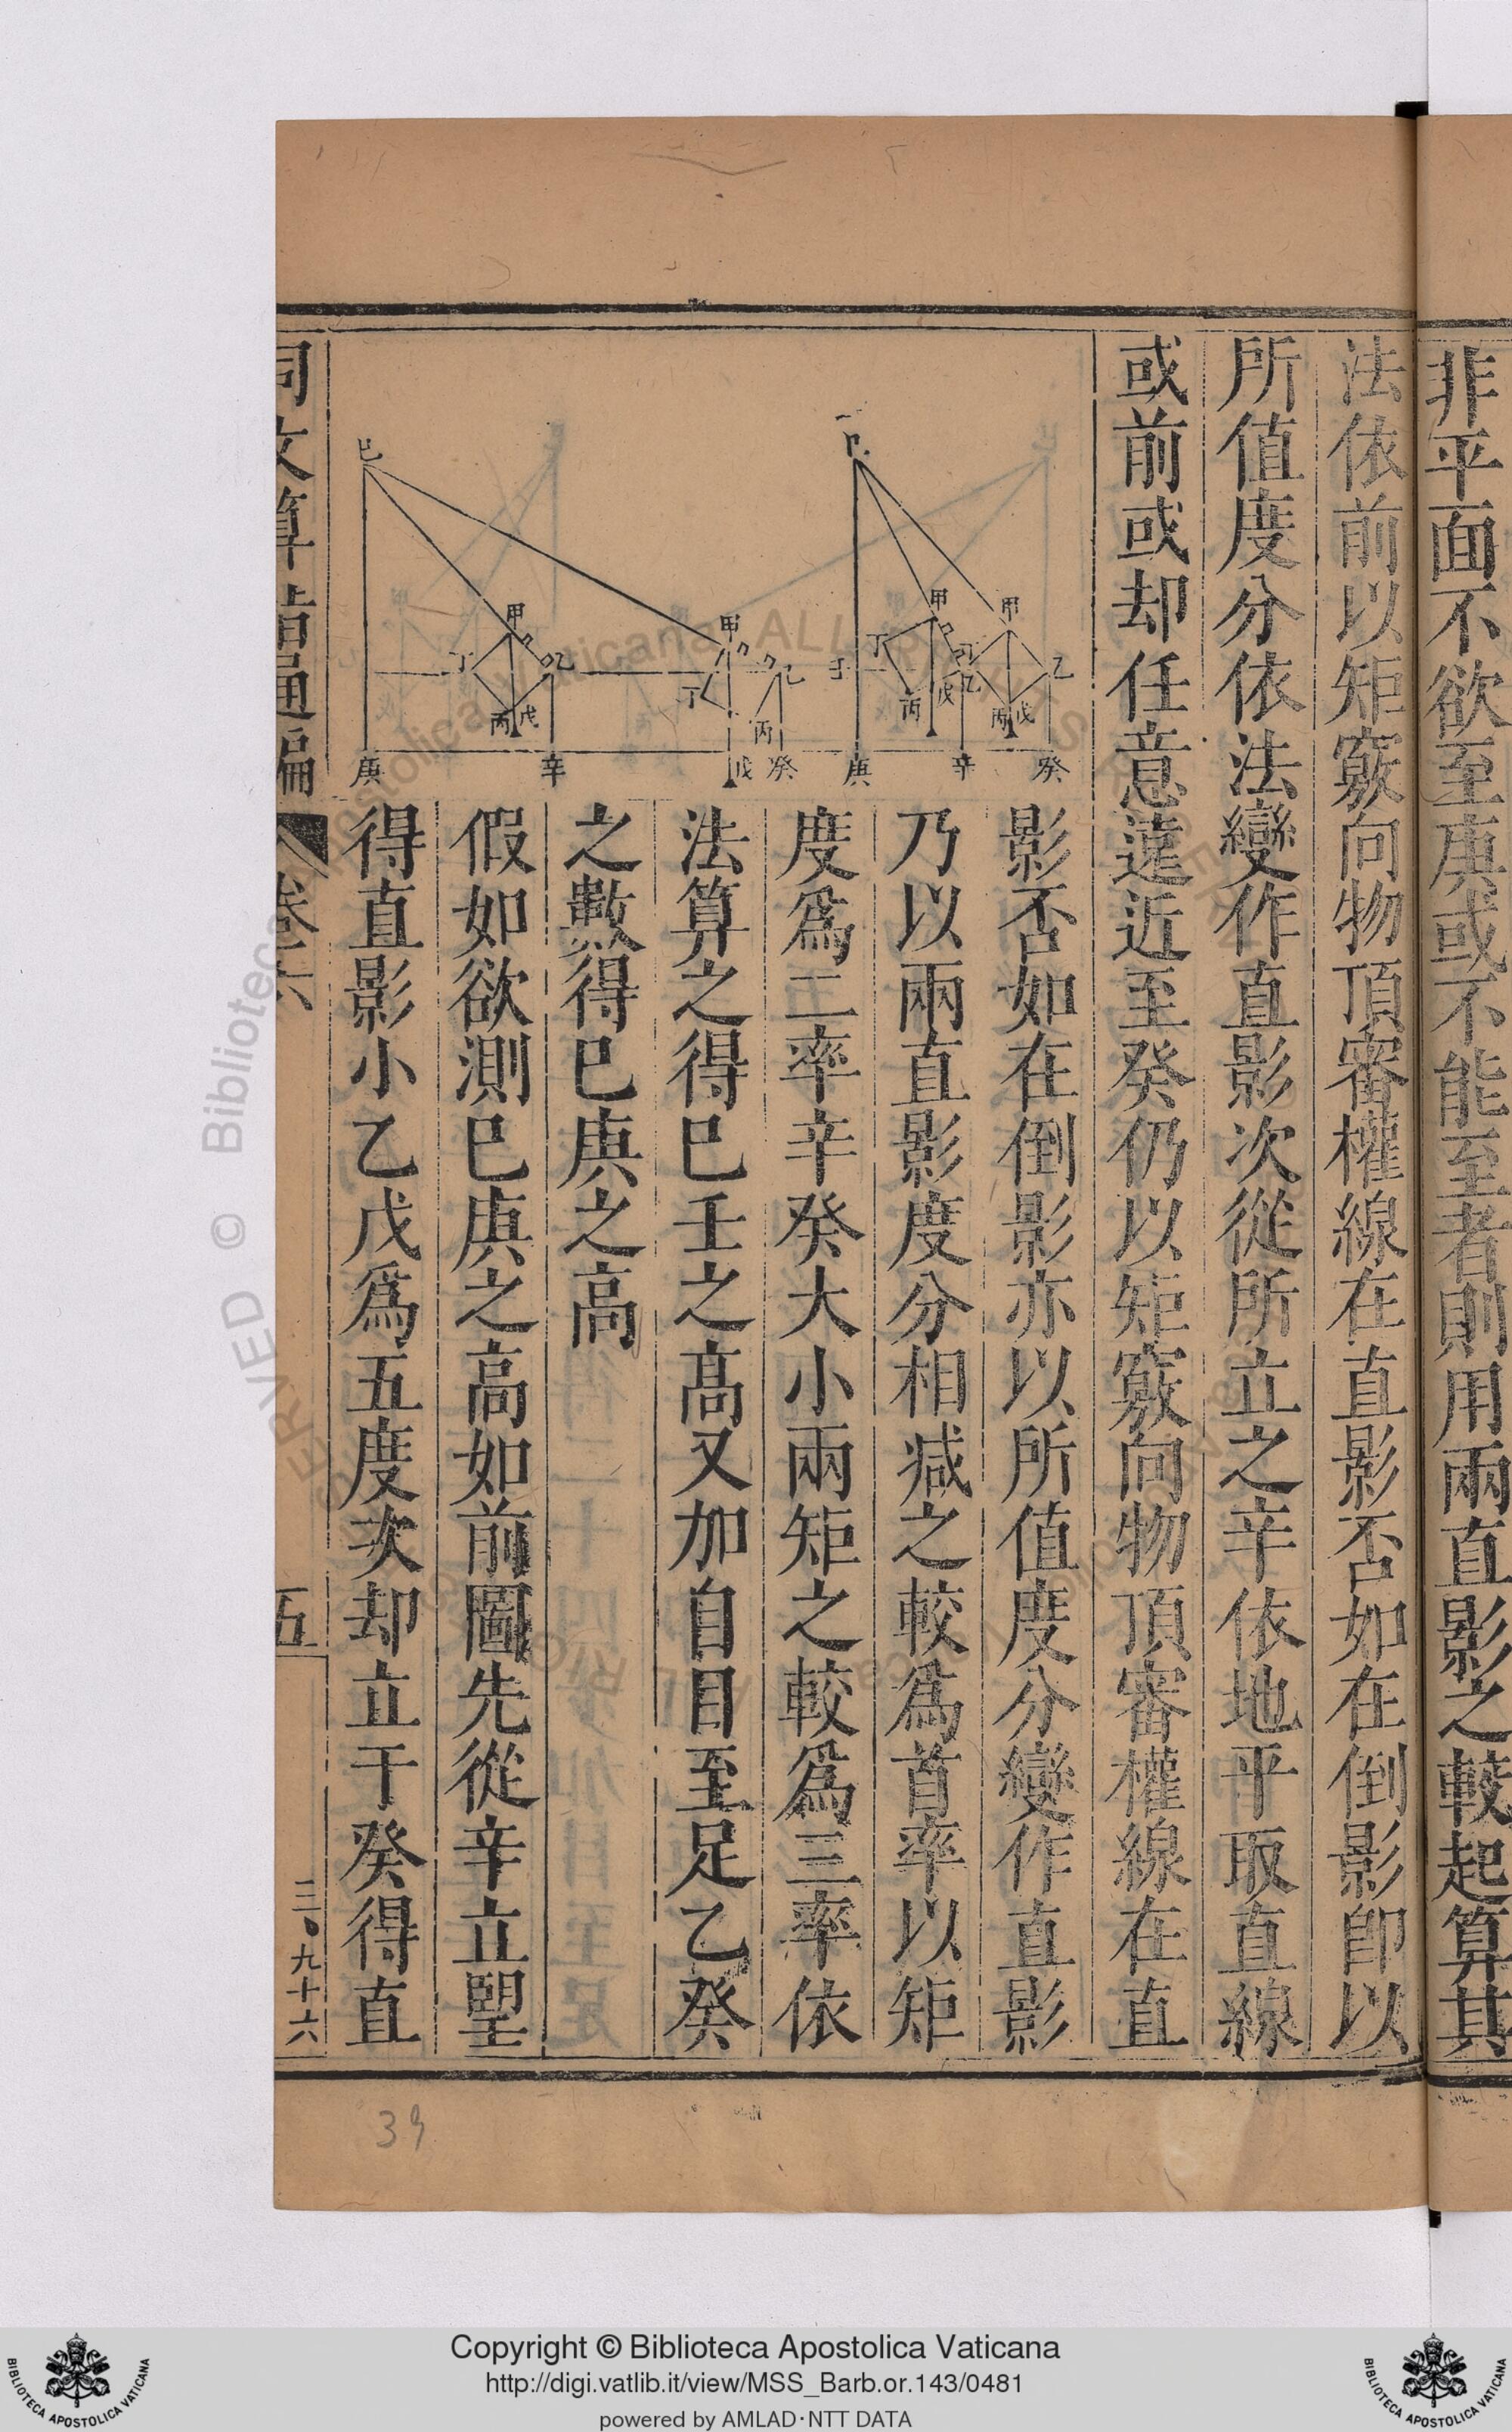 非平面不欲至庚或不能至者則用兩直影之較起算其
法依前以矩竅向物頂審權線在直影否如在倒影卽以
所值度分依法變作直影次從所立之辛依地平取直線
或前或却任意遠近至癸仍以矩竅向物頂審權線在直
影否如在倒影亦以所值度分變作直影
乃以兩直影度分相减之較爲首率以矩
度爲二率辛癸大小兩矩之較爲三率依
法算之得巳壬之高又加自目至足乙癸
之數得巳庚之高
假如欲測巳庚之高如前圖先從辛立朢
得直影小乙戊爲五度次却立于癸得直
甲 甲 乙 丁 丙 戊 乙 丙 戊 壬 庚 辛 癸
巳 甲 甲 丁 乙 丙 戊 丁 乙 丙 庚 辛 戊 癸
同文算指通編
卷六
五
三〇九十六
39
Copyright © Biblioteca Apostolica Vaticana
http://digi.vatlib.it/view/MSS_Barb.or.143/0481
powered by AMLAD·NTT DATA
BIBLIOTECA APOSTOLICA VATICANA
BIBLIOTECA APOSTOLICA VATICANA